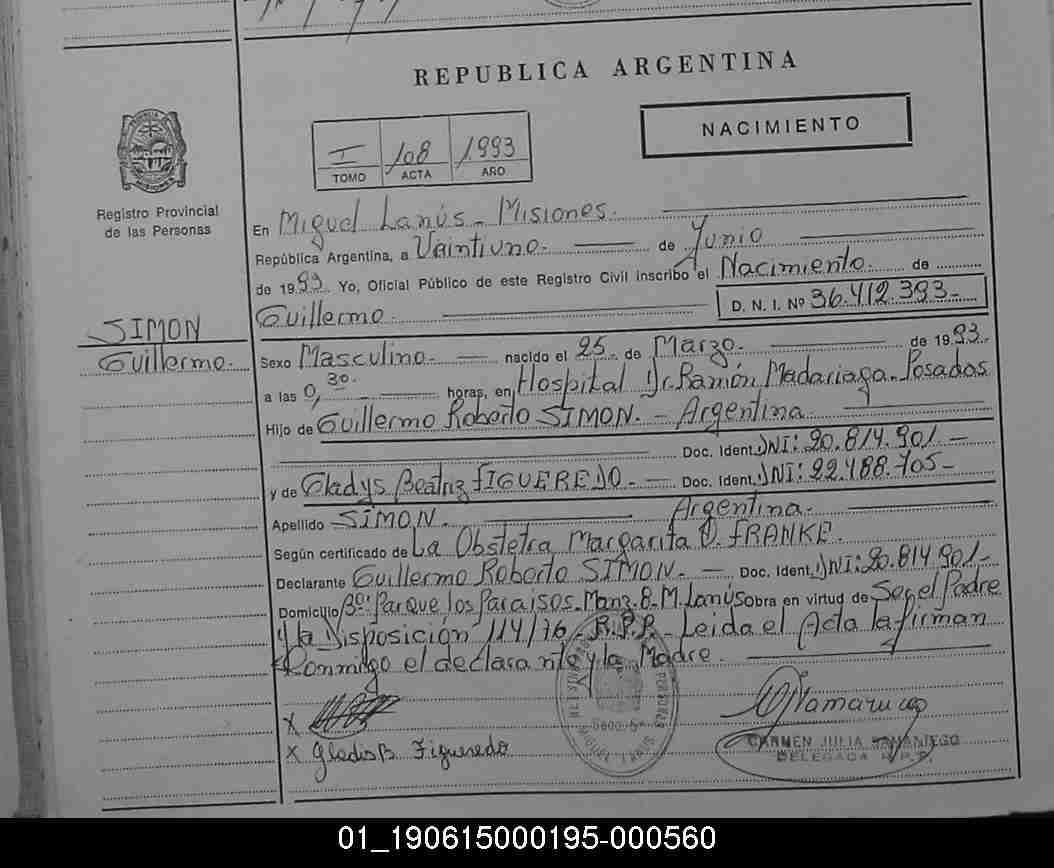 REPUBLICA ARGENTINA
NACIMIENTO
I 108 1993
TOMO ACTA AÑO
Registro Provincial
de las Personas
En Miguel Lanús - Misiones.
República Argentina, a Vaintiuno. de Junio
de 1993. Yo, Oficial Público de este Registro Civil inscribo el Nacimiento. de
Guillermo. D. N. I. Nº 36.412.393-
SIMON
Guillermo.
Sexo Masculino. nacido el 25 de Marzo. de 1993.
a las 0,30. horas, en Hospital Dr. Ramón Madariaga - Posadas
Hijo de Guillermo Roberto SIMON. - Argentina
Doc. Ident. DNI: 20.814.901. -
y de Gladys Beatriz FIGUEREDO. - Doc. Ident. DNI: 22.488.705-
Apellido SIMON. Argentina.
Según certificado de La Obstetra Margarita O. FRANKE.
Declarante Guillermo Roberto SIMON. - Doc. Ident. DNI: 20.814.901-
Domicilio Bº: Parque los Paraisos. Manz. 8 - M. Lanús Obra en virtud de Ser el Padre
y la Disposición 114/76 - R.P.P. - Leida el Acta la firman
Conmigo el declarante y la Madre.
X
X Gladis B. Figueredo
CARMEN JULIA SAMANIEGO
DELEGADA R.P.P.
01_190615000195-000560